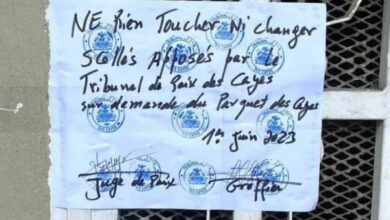 NE Rien Toucher Ni changer
Scellés Apposés par le
Tribunal de Paix des Cayes
sur demande du Parquet des Cayes
1er juin 2023
Juge de Paix Greffier